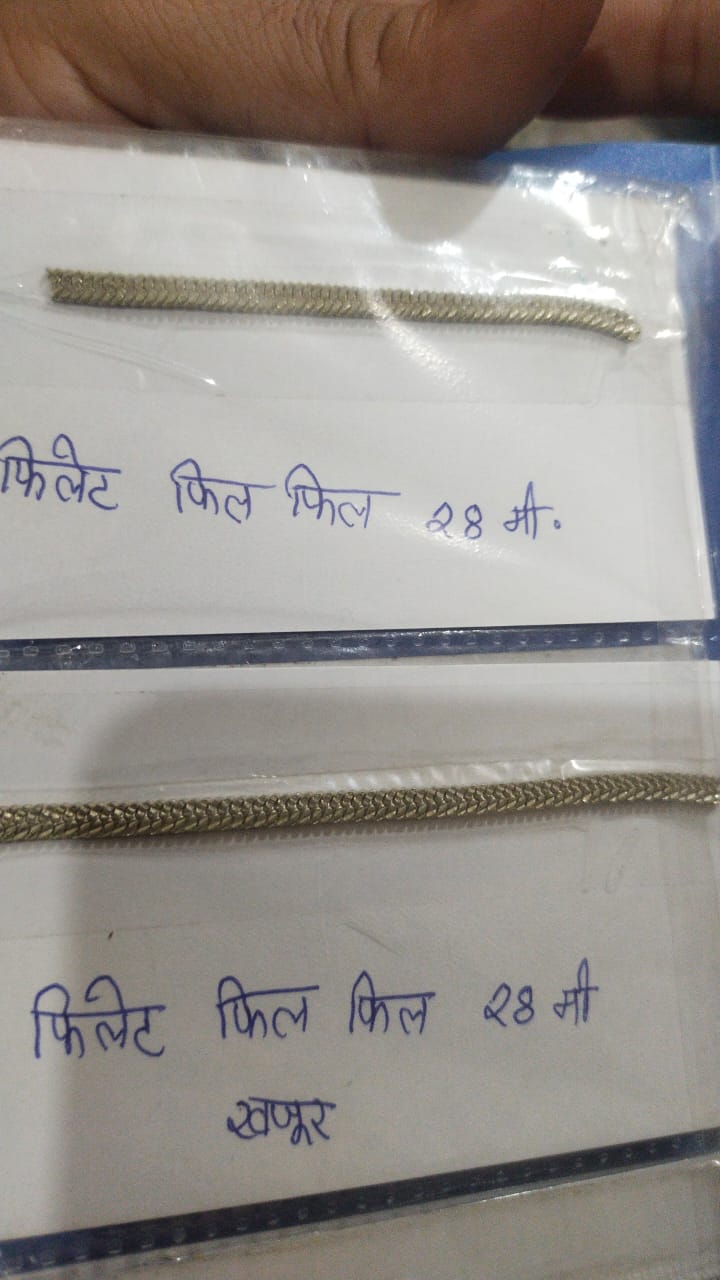 फिलेट फिल फिल २८ मी.
फिलेट फिल फिल २८ मी
खजूर